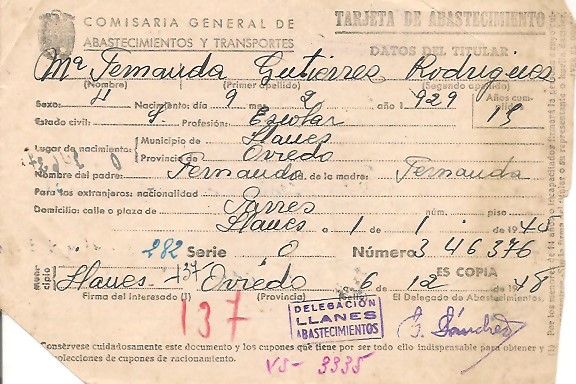 COMISARIA GENERAL DE
ABASTECIMIENTOS Y TRANSPORTES
TARJETA DE ABASTECIMIENTO
DATOS DEL TITULAR
Mª Fernanda Gutierres Rodrigues
(Nombre) (Primer apellido) (Segundo apellido)
Sexo: H Nacimiento: día 9 mes 2 año 1.929 Años cumplidos
Estado civil: S. Profesión: Escolar
Lugar de nacimiento: Municipio de Llanes
Provincia de Oviedo
Nombre del padre: Fernando Id. de la madre: Fernanda
Para los extranjeros: nacionalidad
Domicilio: calle o plaza de Parres núm. piso
Llanes a 1 1 de 194
282 Serie O Número 346376
ES COPIA
Municipio Llanes 137 Oviedo a 6 12 1948
Firma del interesado (1) (Provincia) (Sello) El Delegado de Abastecimientos.
137
DELEGACIÓN
LLANES
ABASTECIMIENTOS
J. Sánchez
Consérvese cuidadosamente este documento y los cupones que tiene por ser todo ello indispensable para obtener y
colecciones de cupones de racionamiento.
VS- 3335